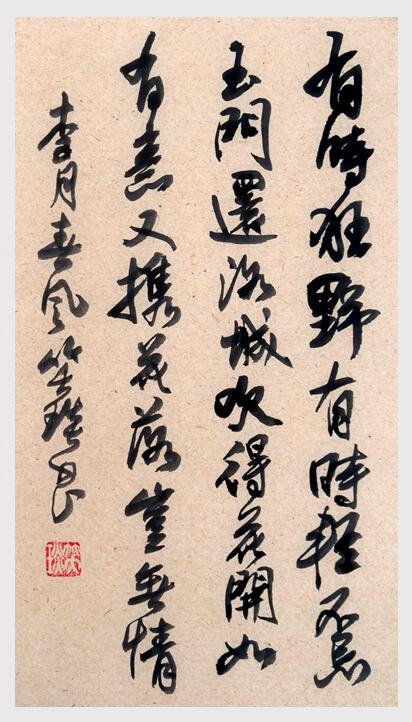 有時狂野有時輕不忘
玉門還洛城吹得花開如
有意又攜花落豈無情
李月春風